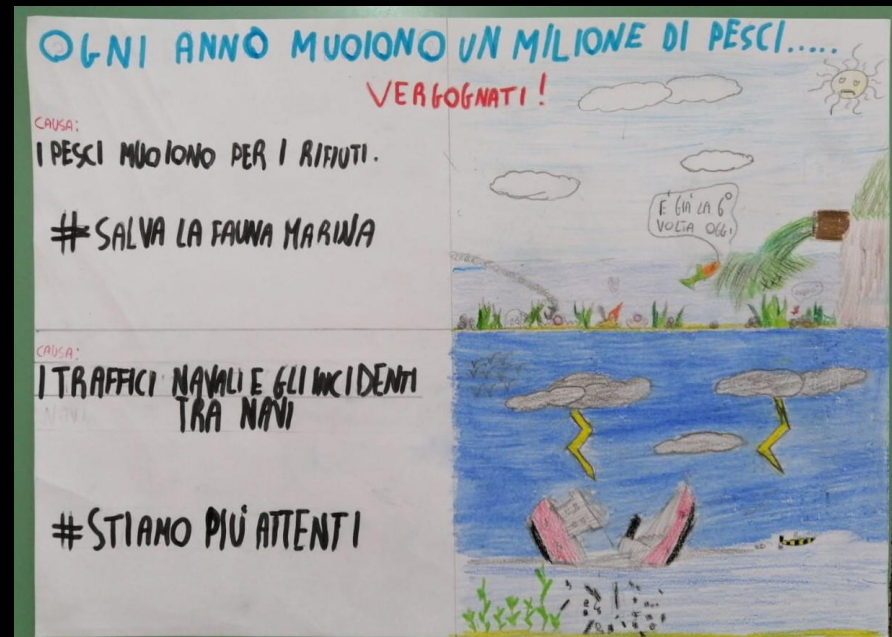 OGNI ANNO MUOIONO UN MILIONE DI PESCI.....
VERGOGNATI!
CAUSA:
I PESCI MUOIONO PER I RIFIUTI.
# SALVA LA FAUNA MARINA
E' GIÀ LA 6°
VOLTA OGGI
CAUSA:
I TRAFFICI NAVALI E GLI INCIDENTI
TRA NAVI
# STIAMO PIÙ ATTENTI